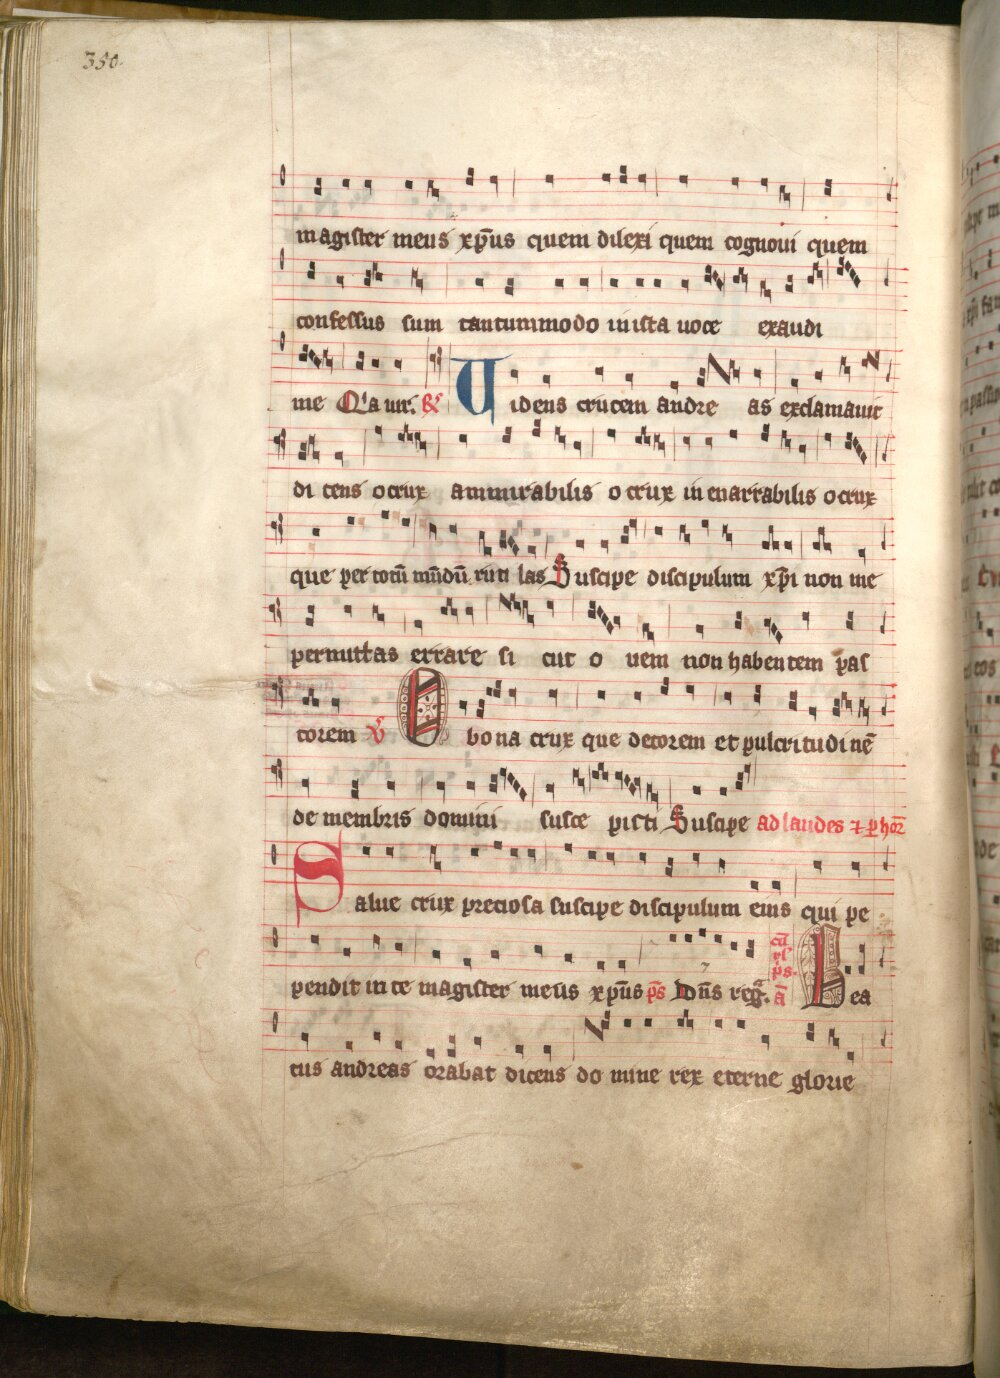 350
magister meus xp̄us quem dilexi quem cognoui quem
confessus sum tantummodo in ista uoce exaudi
me Q'a uir. R Uidens crucem andreas exclamauit
dicens o crux ammirabilis o crux inenarrabilis o crux
que per totū mūdū rutilas Suscipe discipulum xp̄i non me
permittas errare sicut ouem non habentem pas
torem V O bona crux que decorem et pulcritudinē
de membris domini suscepisti Suscipe ad laudes ⁊ p hor̄
Salue crux preciosa suscipe discipulum eius qui pe
pendit in te magister meus xp̄us p̄s Dn̄s reg. ā Bea
tus andreas orabat dicens domine rex eterne glorie